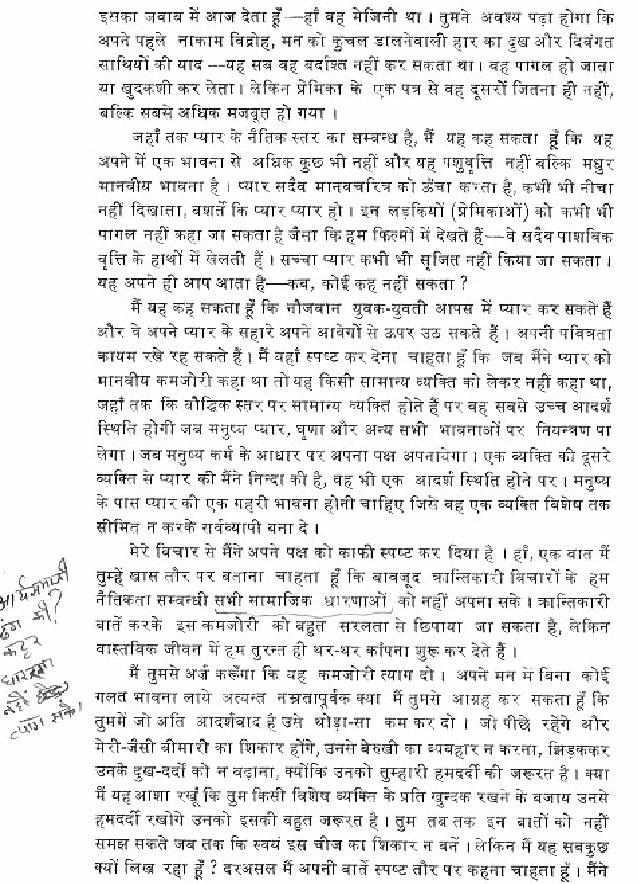 इसका जवाब मैं आज देता हूँ—हाँ वह मेजिनी था । तुमने अवश्य पढ़ा होगा कि
अपने पहले नाकाम विद्रोह, मन को कुचल डालनेवाली हार का दुख और दिवंगत
साथियों की याद —यह सब वह बर्दाश्त नहीं कर सकता था । वह पागल हो जाता
या खुदकशी कर लेता । लेकिन प्रेमिका के एक पत्र से वह दूसरों जितना ही नहीं,
बल्कि सबसे अधिक मजबूत हो गया ।
जहाँ तक प्यार के नैतिक स्तर का सम्बन्ध है, मैं यह कह सकता हूँ कि यह
अपने में एक भावना से अधिक कुछ भी नहीं और यह पशुवृत्ति नहीं बल्कि मधुर
मानवीय भावना है । प्यार सदैव मानवचरित्र को ऊँचा करता है, कभी भी नीचा
नहीं दिखाता, बशर्ते कि प्यार प्यार हो । इन लड़कियों (प्रेमिकाओं) को कभी भी
पागल नहीं कहा जा सकता है जैसा कि हम फिल्मों में देखते हैं—वे सदैव पाशविक
वृत्ति के हाथों में खेलती हैं । सच्चा प्यार कभी भी सृजित नहीं किया जा सकता ।
यह अपने ही आप आता है—कब, कोई कह नहीं सकता ?
मैं यह कह सकता हूँ कि नौजवान युवक-युवती आपस में प्यार कर सकते हैं
और वे अपने प्यार के सहारे अपने आवेगों से ऊपर उठ सकते हैं । अपनी पवित्रता
कायम रखे रह सकते हैं । मैं वहाँ स्पष्ट कर देना चाहता हूँ कि जब मैंने प्यार को
मानवीय कमजोरी कहा था तो यह किसी सामान्य व्यक्ति को लेकर नहीं कहा था,
जहाँ तक कि बौद्धिक स्तर पर सामान्य व्यक्ति होते हैं पर वह सबसे उच्च आदर्श
स्थिति होगी जब मनुष्य प्यार, घृणा और अन्य सभी भावनाओं पर नियन्त्रण पा
लेगा । जब मनुष्य कर्म के आधार पर अपना पक्ष अपनायेगा । एक व्यक्ति की दूसरे
व्यक्ति से प्यार की मैंने निन्दा की है, वह भी एक आदर्श स्थिति होने पर । मनुष्य
के पास प्यार की एक गहरी भावना होनी चाहिए जिसे वह एक व्यक्ति विशेष तक
सीमित न करके सर्वव्यापी बना दे ।
मेरे विचार से मैंने अपने पक्ष को काफी स्पष्ट कर दिया है । हाँ, एक बात मैं
तुम्हें खास तौर पर बताना चाहता हूँ कि बावजूद क्रान्तिकारी विचारों के हम
नैतिकता सम्बन्धी सभी सामाजिक धारणाओं को नहीं अपना सके । क्रान्तिकारी
बातें करके इस कमजोरी को बहुत सरलता से छिपाया जा सकता है, लेकिन
वास्तविक जीवन में हम तुरन्त ही थर-थर काँपना शुरू कर देते हैं ।
मैं तुमसे अर्ज करूँगा कि यह कमजोरी त्याग दो । अपने मन में बिना कोई
गलत भावना लाये अत्यन्त नम्रतापूर्वक क्या मैं तुमसे आग्रह कर सकता हूँ कि
तुममें जो अति आदर्शवाद है उसे थोड़ा-सा कम कर दो । जो पीछे रहेंगे और
मेरी-जैसी बीमारी का शिकार होंगे, उनसे बेरुखी का व्यवहार न करना, झिड़ककर
उनके दुख-दर्दों को न बढ़ाना, क्योंकि उनको तुम्हारी हमदर्दी की जरूरत है । क्या
मैं यह आशा रखूँ कि तुम किसी विशेष व्यक्ति के प्रति खुन्दक रखने के बजाय उनसे
हमदर्दी रखोगे उनको इसकी बहुत जरूरत है । तुम तब तक इन बातों को नहीं
समझ सकते जब तक कि स्वयं इस चीज का शिकार न बनो । लेकिन मैं यह सबकुछ
क्यों लिख रहा हूँ ? दरअसल मैं अपनी बातें स्पष्ट तौर पर कहना चाहता हूँ । मैंने
आर्यसमाजी
ढंग की?
कट्टर
नहीं
त्याग सके।